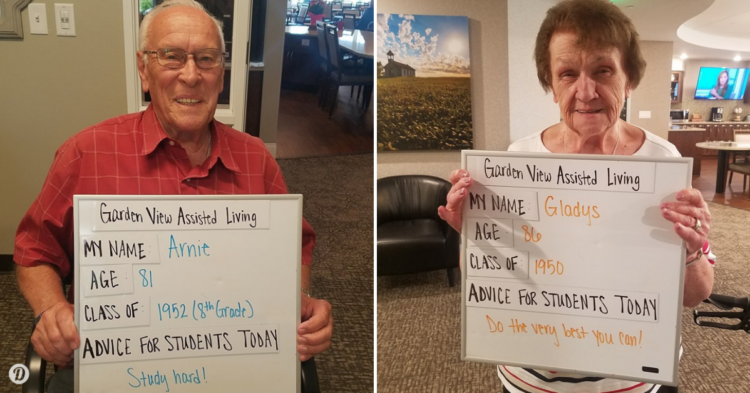 Garden View Assisted Living
MY NAME Arnie
AGE 81
CLASS OF 1952 (8th Grade)
ADVICE FOR STUDENTS TODAY
Study hard!
D
Garden View Assisted Living
MY NAME Gladys
AGE 86
CLASS OF 1950
ADVICE FOR STUDENTS TODAY
Do the very best you can!